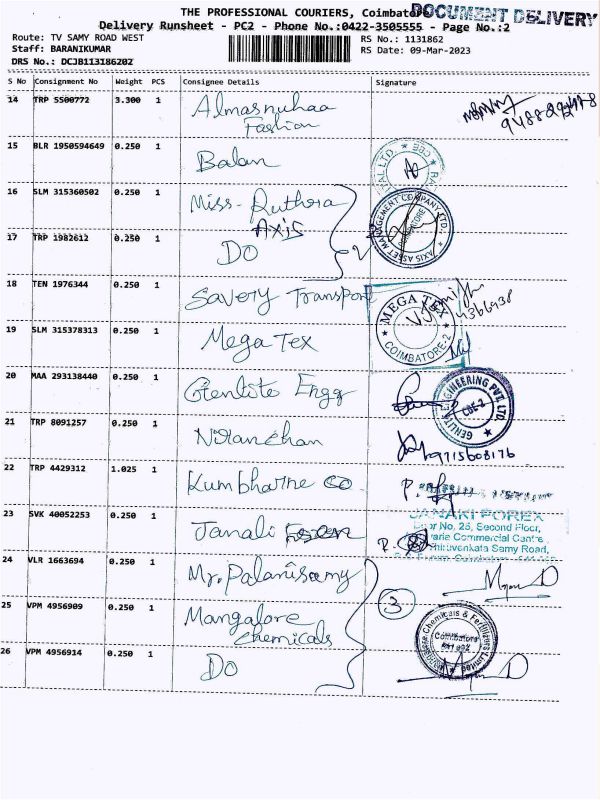 THE PROFESSIONAL COURIERS, Coimbator
DOCUMENT DELIVERY
Delivery Runsheet - PC2 - Phone No.:0422-3505555 - Page No.:2
Route: TV SAMY ROAD WEST
RS No.: 1131862
Staff: BARANIKUMAR
RS Date: 09-Mar-2023
DRS No.: DCJB1131862O2
S No Consignment No Weight PCS Consignee Details Signature
14 TRP 5500772 3.300 1 Almasnuhaa
Fashion
15 BLR 1950594649 0.250 1 Balan
16 SLM 315360502 0.250 1 Miss- Ruthora
AXIS
AXIS ASSET MANAGEMENT COMPANY LTD.
COIMBATORE
17 TRP 1982612 0.250 1 DO 2
18 TEN 1976344 0.250 1 Savery Transport
19 SLM 315378313 0.250 1 Mega Tex
MEGA TEX
COIMBATORE-2
20 MAA 293138440 0.250 1 Genlite Engg
GENLITE ENGINEERING PVT. LTD.
CBE-2
21 TRP 8091257 0.250 1 Niranchan 9715608176
22 TRP 4429312 1.025 1 Kumbharne co
23 SVK 40052253 0.250 1 Janali
JANAKI POREX
Door No. 26, Second Floor,
Commercial Centre
Samy Road,
24 VLR 1663694 0.250 1 Mr. Palanisamy
25 VPM 4956909 0.250 1 Mangalore
chemicals
3
Mangalore Chemicals & Fertilizers Limited
Coimbatore
26 VPM 4956914 0.250 1 DO